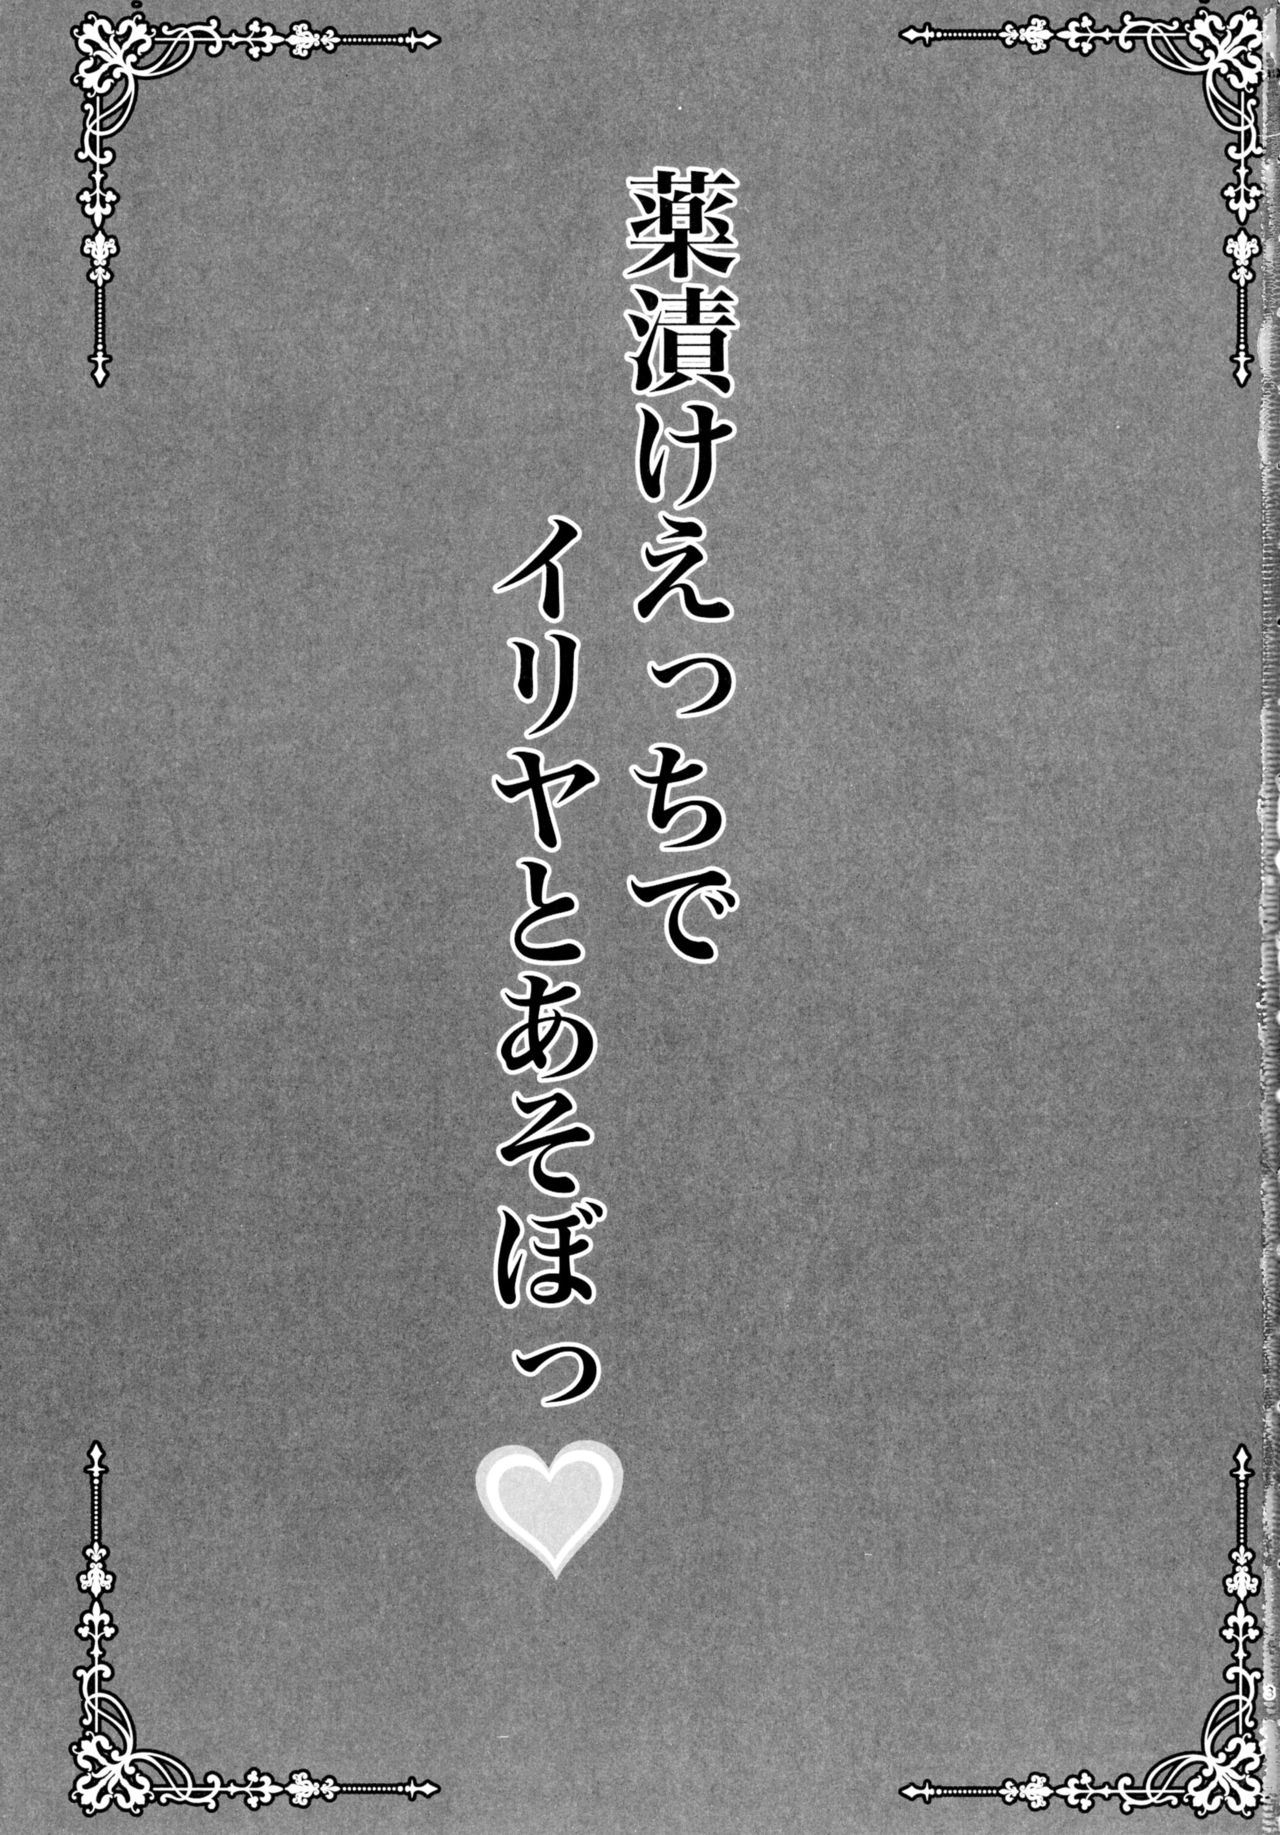 薬漬けえっちで
イリヤとあそぼっ♥